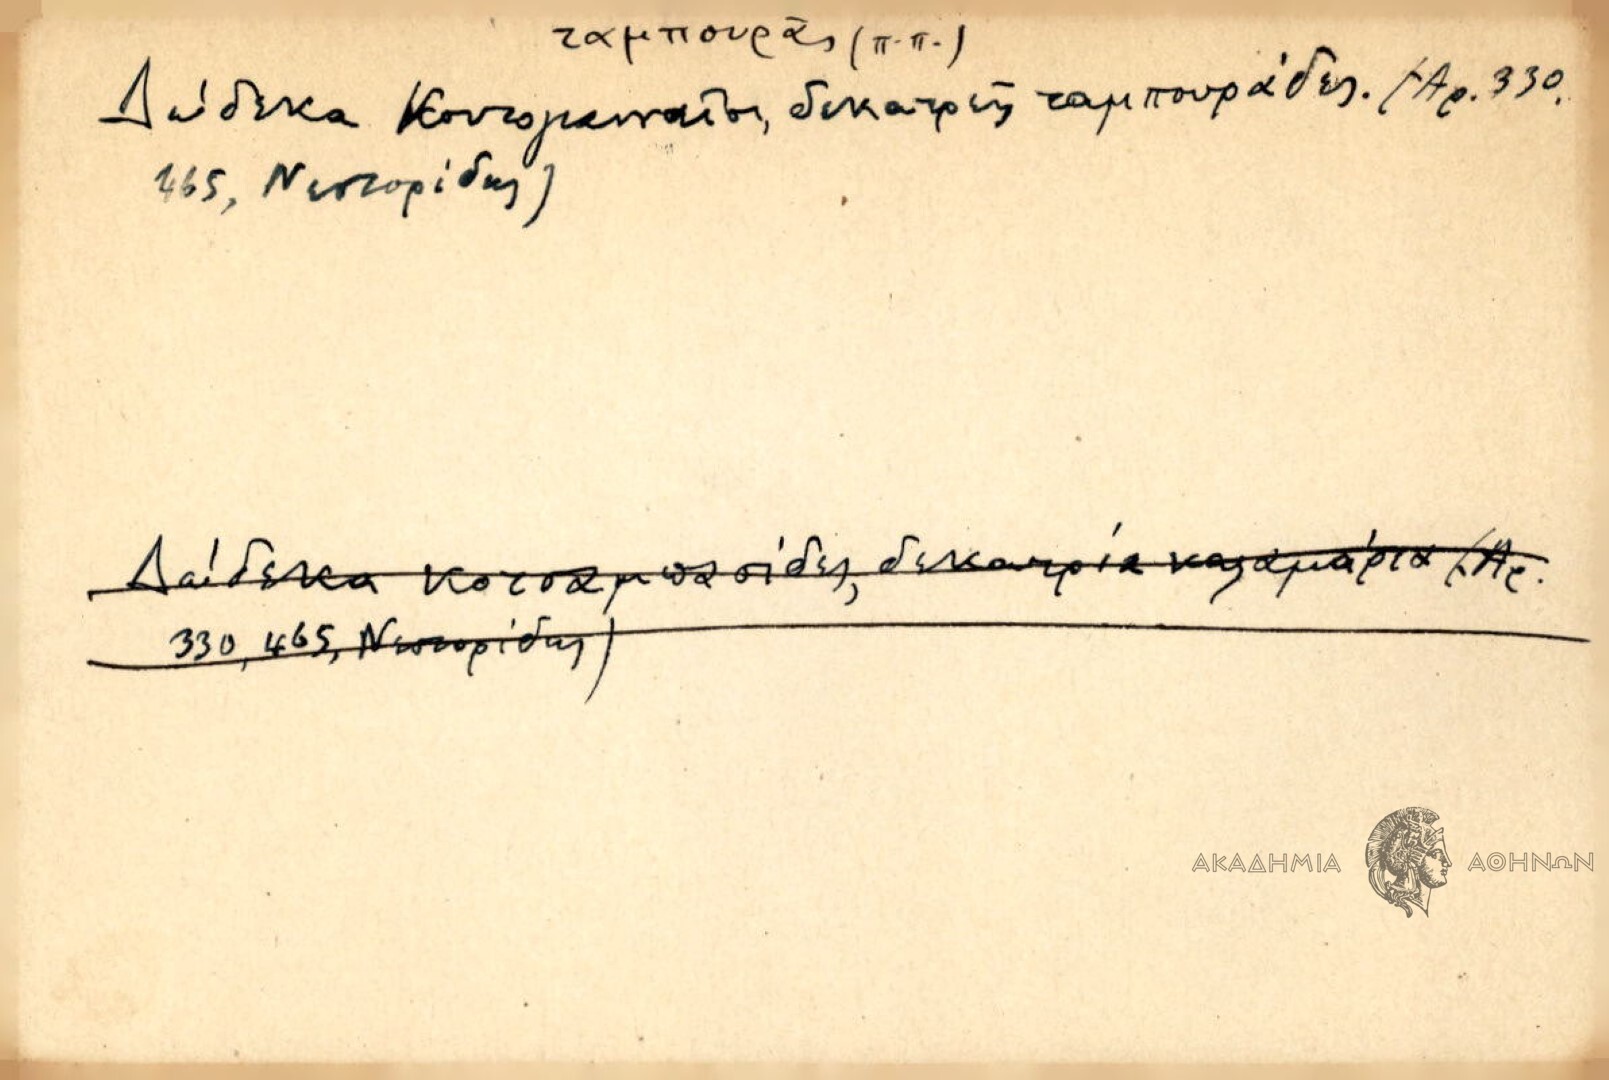 ταμπουρᾶς (π.π.)
Δώδεκα Κοντογιανναῖοι, δεκατρεῖς ταμπουράδες. (Ἀρ. 330,
465, Νεστορίδης)
Δώδεκα Κοτσαμπασίδες, δεκατρία καλαμάρια (Ἀρ.
330, 465, Νεστορίδης)
ΑΚΑΔΗΜΙΑ ΑΘΗΝΩΝ